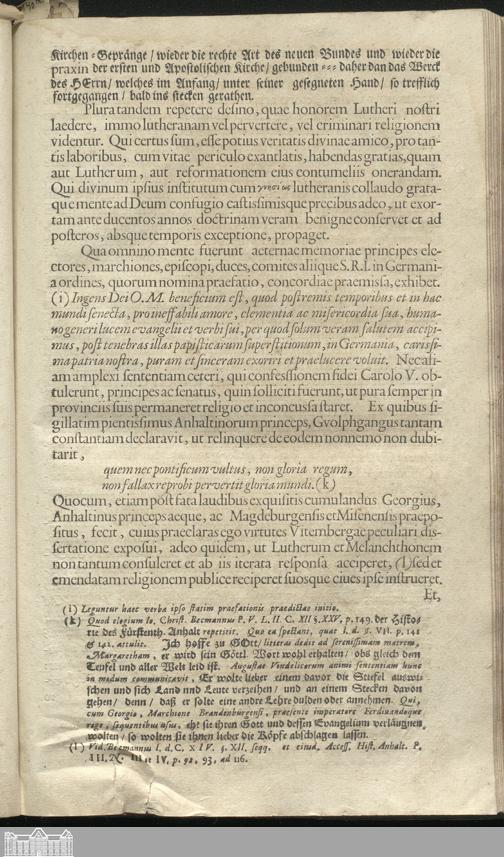 Kirchen-Gepränge/ wieder die rechte Art des neuen Bundes und wieder die
praxin der ersten und Apostolischen Kirche/ gebunden --- daher dan das Werck
des HErrn/ welches im Anfang/ unter seiner gesegneten Hand/ so trefflich
fortgegangen/ bald ins stecken gerathen.
Plura tandem repetere desino, quae honorem Lutheri nostri
laedere, immo lutheranam vel pervertere, vel criminari religionem
videntur. Qui certus sum, esse potius veritatis divinae amico, pro tan-
tis laboribus, cum vitae periculo exantlatis, habendas gratias, quam
aut Lutherum, aut reformationem eius contumeliis onerandam.
Qui divinum ipsius institutum cum γνησίοις lutheranis collaudo grata-
que mente ad Deum confugio castissimisque precibus adeo, ut exor-
tam ante ducentos annos doctrinam veram benigne conservet et ad
posteros, absque temporis exceptione, propaget.
Qua omnino mente fuerunt aeternae memoriae principes ele-
ctores, marchiones, episcopi, duces, comites aliique S. R. I. in Germani-
a ordines, quorum nomina praefatio, concordiae praemissa, exhibet.
(i) Ingens Dei O. M. beneficium est, quod postremis temporibus et in hac
mundi senecta, pro ineffabili amore, clementia ac misericordia sua, huma-
no generi lucem evangelii et verbi sui, per quod solum veram salutem accipi-
mus, post tenebras illas papisticarum superstitionum, in Germania, carissi-
ma patria nostra, puram et sinceram exoriri et praelucere voluit. Necasi-
am amplexi sententiam ceteri, qui confessionem fidei Carolo V. ob-
tulerunt, principes ac senatus, quin solliciti fuerunt, ut pura semper in
provinciis suis permaneret religio et inconcussa staret. Ex quibus si-
gillatim pientissimus Anhaltinorum princeps, Gvolphgangus tantam
constantiam declaravit, ut relinquere de eodem nonnemo non dubi-
tarit,
quem nec pontificum vultus, non gloria regum,
non fallax reprobi pervertit gloria mundi. (k)
Quocum, etiam post fata laudibus exquisitis cumulandus Georgius,
Anhaltinus princeps aeque, ac Magdeburgensis et Misenensis praepo-
situs, fecit, cuius praeclaras ego virtutes Vitembergae peculiari dis-
sertatione exposui, adeo quidem, ut Lutherum et Melanchthonem
non tantum consuleret et ab iis iterata responsa acciperet, (l) sed et
emendatam religionem publice reciperet suosque cives ipse instrueret.
Et,
(i) Leguntur haec verba ipso statim praefationis praedictae initio.
(k) Quod elogium Io. Christ. Becmannus P. V. L. II. C. XII §. XXV, p. 149. der Histo-
rie des Fürstenth. Anhalt repetitit. Quo ea spectant, quae l. d. §. VII. p. 141
et 142. attulit. Ich hoffe zu GOtt/ litteras dedit ad serenissimam matrem,
Margaretham, er wird sein Göttl. Wort wohl erhalten/ obs gleich dem
Teufel und aller Welt leid ist. Augustae Vindelicorum animi sententiam hunc
in modum communicavit, Er wolte lieber einem davor die Stiefel auswi-
schen und sich Land und Leute verzeihen/ und an einem Stecken davon
gehen/ denn/ daß er solte eine andre Lehre dulden oder annehmen. Qui,
cum Georgio, Marchione Brandenburgensi, praesente imperatore Ferdinandoque
rege, sequentibus usus, ehe sie ihren Gott und dessen Evangelium verläugnen
wolten/ so wolten sie ihnen lieber die Köpfe abschlagen lassen.
(l) Vid. Becmannus l. d. C. XIV. §. XII. seqq. et eiusd. Access. Hist. Anhalt. P.
III. et IV. p. 92, 93, ad 116.